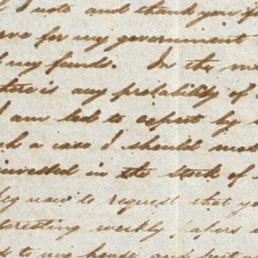 I note and thank you f
ave for my government
my funds. In the m
there is any probability of
I am led to expect by
such a case I should
invested in the stock of
beg now to request that yo
teresting weekly papers
to my house and